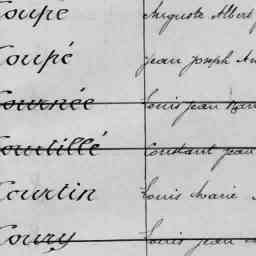 Coupé Auguste Albert
Coupé Jean Joseph
Cournée Louis Jean
Courtillé Constant Jean
Courtin Louis Marie
Coury Louis Jean